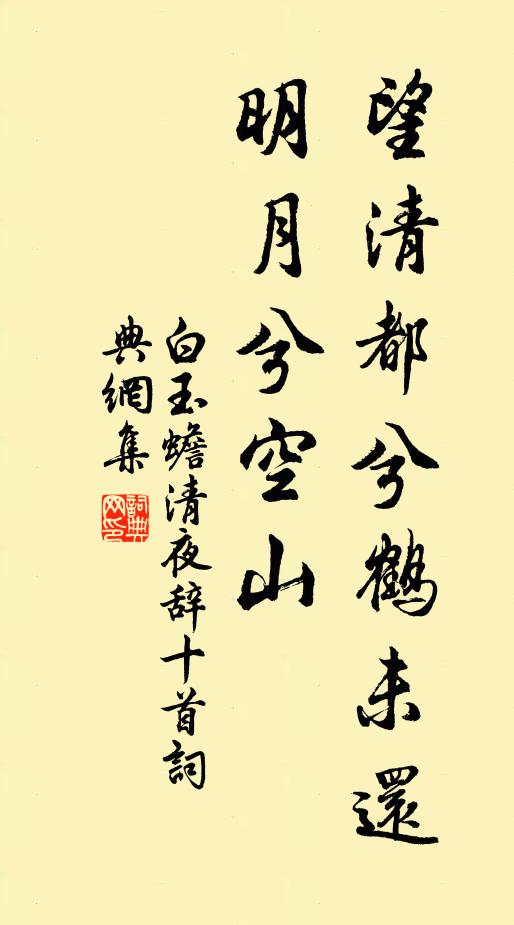 望清都兮鶴未還
明月兮空山
白玉蟾清夜辞十首詞
典網集
詞典網印